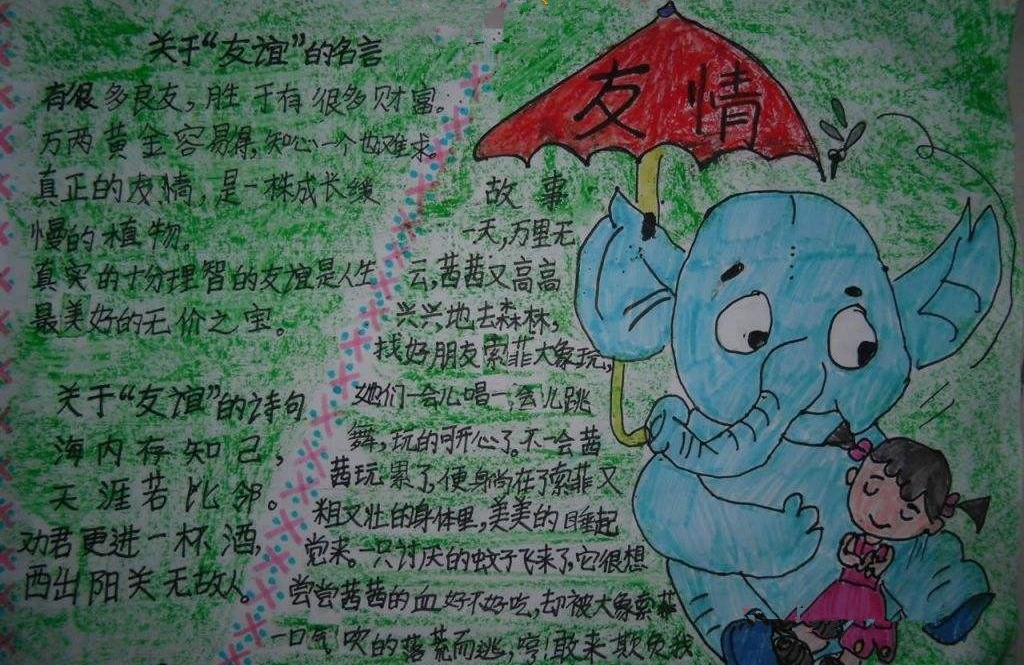 友情
关于“友谊”的名言
有很多良友，胜于有很多财富。
万两黄金容易得，知心一个也难求。
真正的友情，是一株成长缓
慢的植物。
真实的十分理智的友谊是人生
最美好的无价之宝。
关于“友谊”的诗句
海内存知己，
天涯若比邻。
劝君更进一杯酒，
西出阳关无故人。
故事
一天，万里无
云，茜茜又高高
兴兴地去森林，
找好朋友索菲大象玩，
她们一会儿唱一会儿跳
舞，玩的可开心了。不一会茜
茜玩累了，便身尚在了索菲又
粗又壮的身体里，美美的睡起
觉来。一只讨厌的蚊子飞来了，它很想
尝尝茜茜的血好不好吃，却被大象索菲
一口气吹的落荒而逃，哼！敢来欺负我